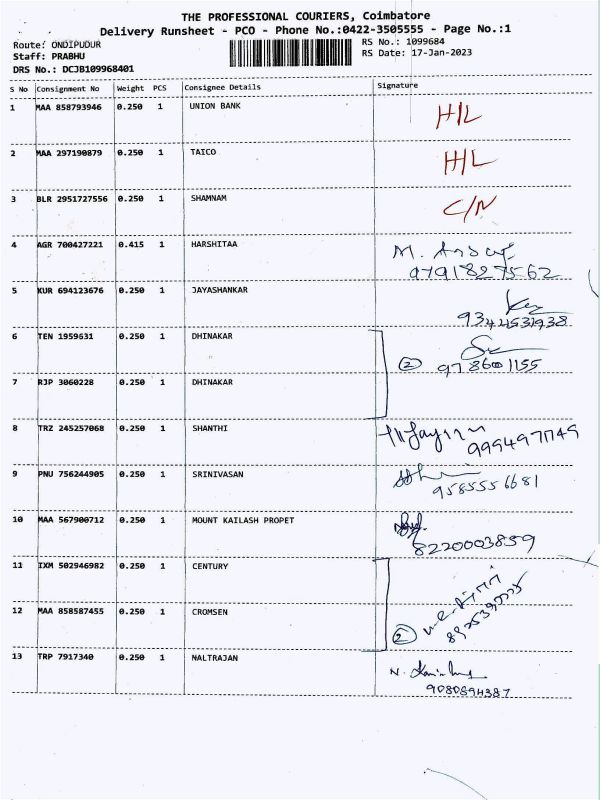 THE PROFESSIONAL COURIERS, Coimbatore
Delivery Runsheet - PCO - Phone No.:0422-3505555 - Page No.:1
Route: ONDIPUDUR
RS No.: 1099684
Staff: PRABHU
RS Date: 17-Jan-2023
DRS No.: DCJB109968401
S No Consignment No Weight PCS Consignee Details Signature
1 MAA 858793946 0.250 1 UNION BANK H/L
2 MAA 297190879 0.250 1 TAICO H/L
3 BLR 2951727556 0.250 1 SHAMNAM C/N
4 AGR 700427221 0.415 1 HARSHITAA M.
9791827562
5 KUR 694123676 0.250 1 JAYASHANKAR
9344531938
6 TEN 1959631 0.250 1 DHINAKAR
2 9786001155
7 RJP 3060228 0.250 1 DHINAKAR
8 TRZ 245257068 0.250 1 SHANTHI
9 PNU 756244905 0.250 1 SRINIVASAN
9585556681
10 MAA 567900712 0.250 1 MOUNT KAILASH PROPET
8220003859
11 IXM 502946982 0.250 1 CENTURY
12 MAA 858587455 0.250 1 CROMSEN
2
13 TRP 7917340 0.250 1 NALTRAJAN N.
9080694387